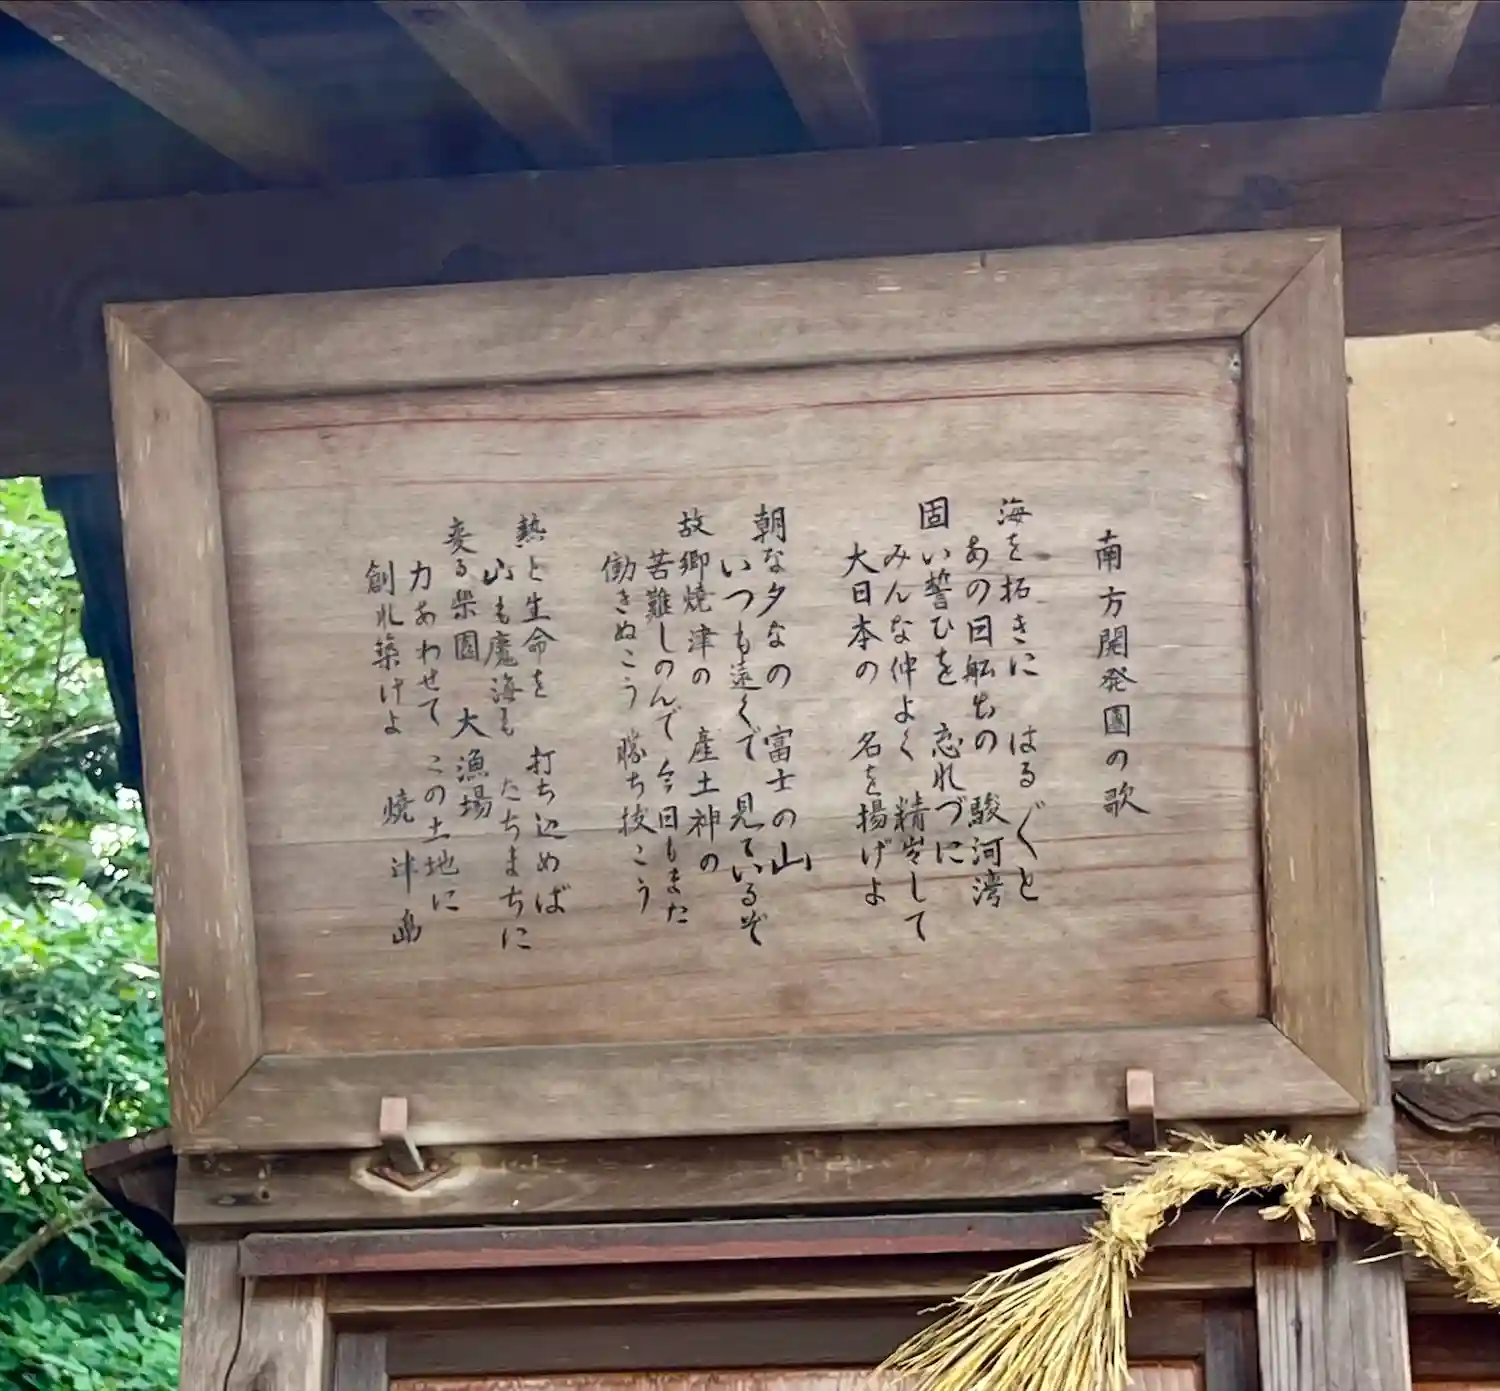 南方開発團の歌
海を拓きに はる〴〵と
あの日船出の 駿河湾
固い誓ひを 忘れづに
みんな仲よく 精出して
大日本の 名を揚げよ
朝な夕なの 富士の山
いつも遠くで 見ているぞ
故郷焼津の 産土神の
苦難しのんで 今日もまた
働きぬこう 勝ち抜こう
熱と生命を 打ち込めば
山も魔海も たちまちに
変る楽園 大漁場
力あわせて この土地に
創れ築けよ 焼津島